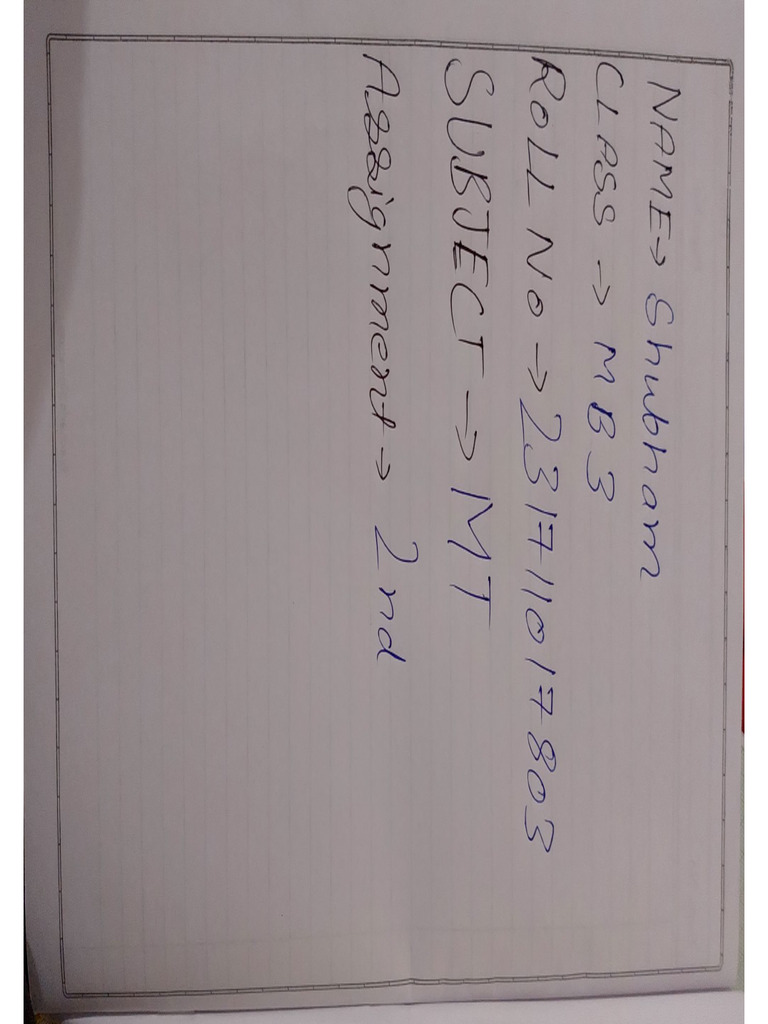 NAME → Shubham
CLASS → MB3
ROLL NO → 231711017803
SUBJECT → MT
Assignment → 2nd